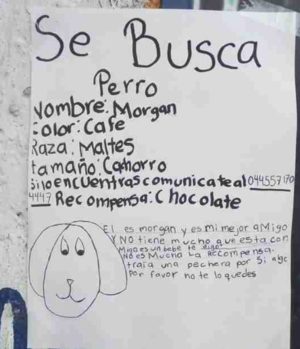 Se Busca
Perro
Nombre: Morgan
Color: Cafe
Raza: Maltes
tamaño: Cachorro
Si lo encuentras comunicate al 044557170
4447 Recompensa: Chocolate
El es morgan y es mi mejor amigo
Y NO tiene mucho que esta con
migo es un bebe te digo
No es Mucha la Recompensa.
traia una pechera por si algo
Por favor no te lo quedes